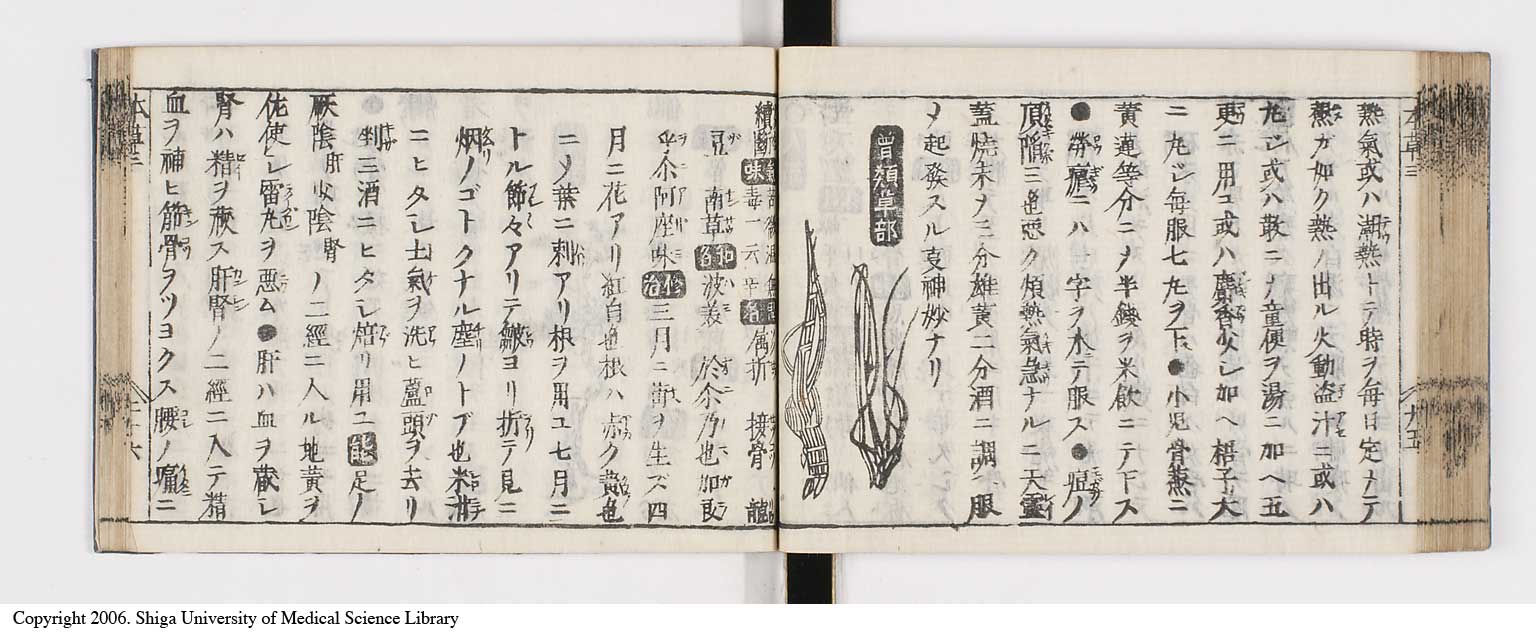 熱氣或ハ潮熱トテ時ヲ毎日定メテ
熱ガ如ク熱ノ出ル火動盗汗ニ或ハ
丸シ或ハ散ニメ童便ヲ湯ニ加ヘ五
更ニ用ユ或ハ麝香少シ加ヘ梧子大
ニ丸シ毎服七丸ヲ下ス●小児骨蒸ニ
黄蓮等分ニメ半銭ヲ米飲ニテ下ス
ニハ一字ヲ水テ服ス●痘ノ
頂陥三也悪ク煩熱氣急ナルニ天靈
蓋燒末メ三分雄黄二分酒ニ調ヘ服
メ起發スル叓神妙ナリ
草部
續斷 味 毒一云辛 名 属折 接骨 龍
豆 南草 和名 波美 於尓乃也加良
乎尓阿座味 修治 三月ニ苗ヲ生ズ四
月ニ花アリ紅白也根ハ赤ク黄也
ニノ葉ニ刺アリ根ヲ用ユ七月ニ
トル節々アリテ皺ヨリ折テ見ニ
烟ノゴトクナル塵ノトブ也米泔
ニヒタシ土氣ヲ洗ヒ蘆頭ヲ去リ
剉三酒ニヒタシ焙リ用ユ 能 足ノ
厥陰肝 少陰腎ノ二經ニ入ル地黄ヲ
佐使シ雷丸ヲ悪ム●肝ハ血ヲ蔵シ
腎ハ精ヲ蔵ス肝腎ノ二經ニ入テ精
血ヲ補ヒ筋骨ヲツヨクス腰ノ痛ニ
Copyright 2006. Shiga University of Medical Science Library